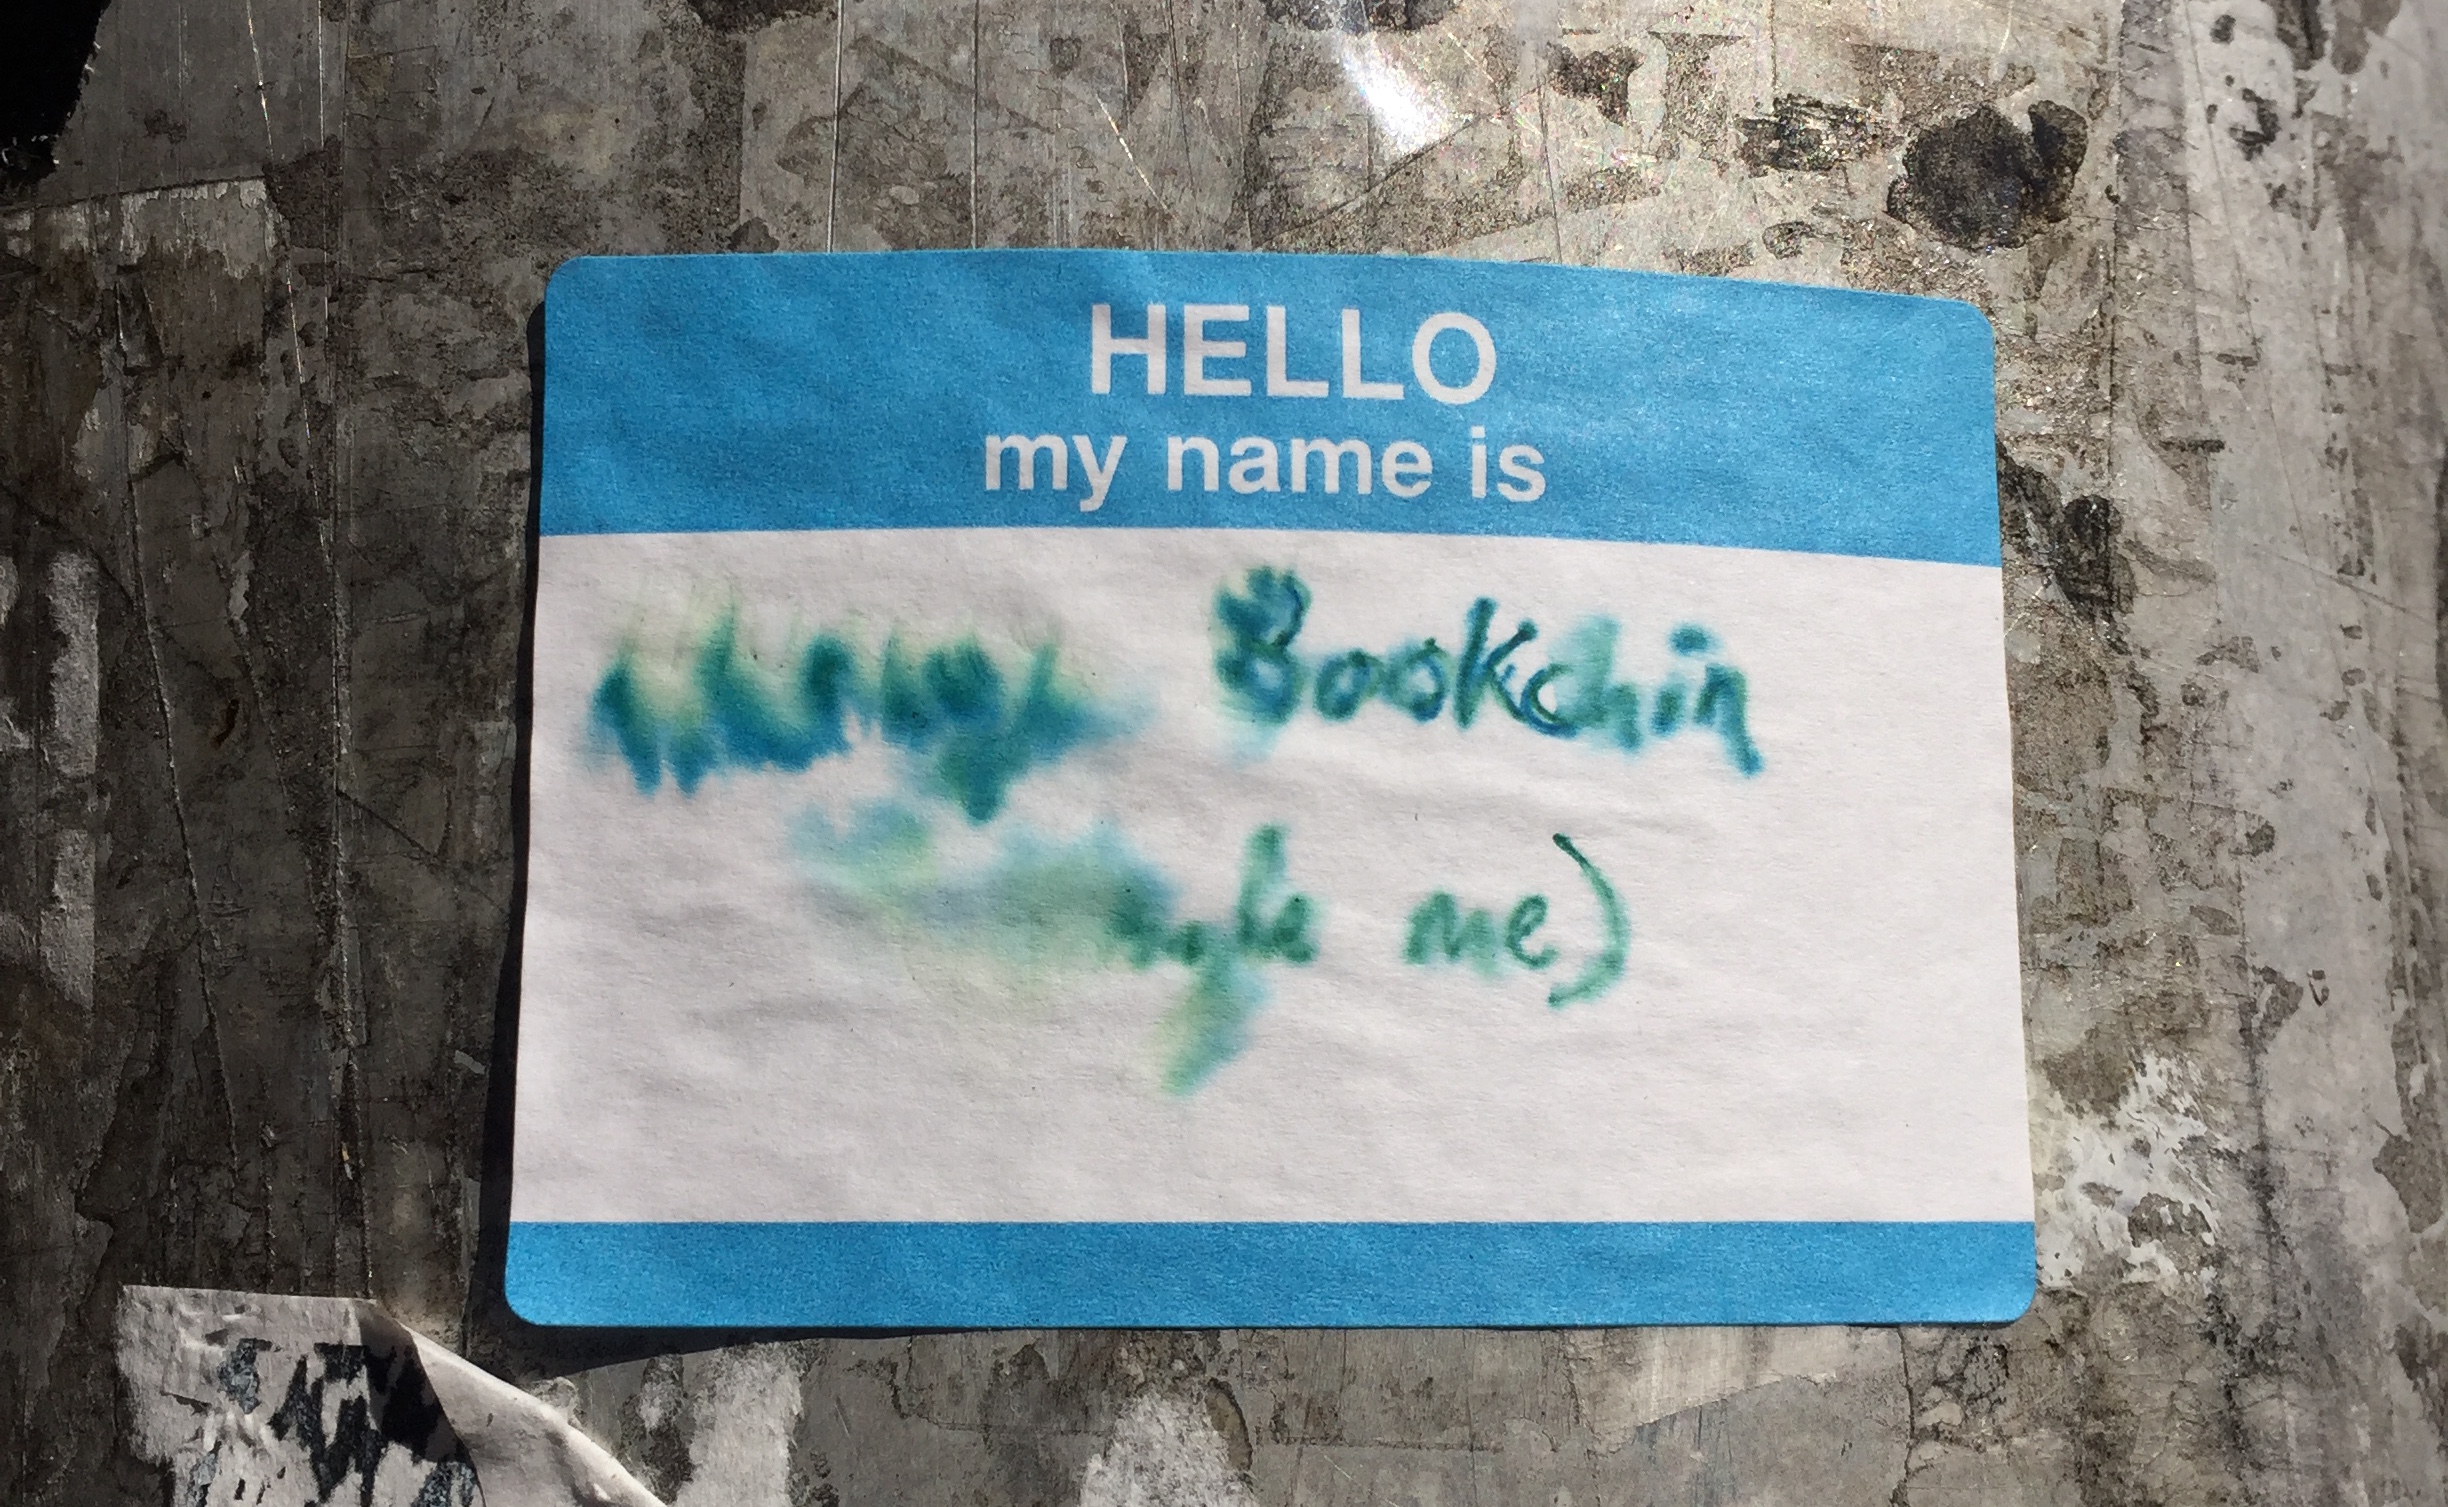 HELLO
my name is
Bookchin
me)